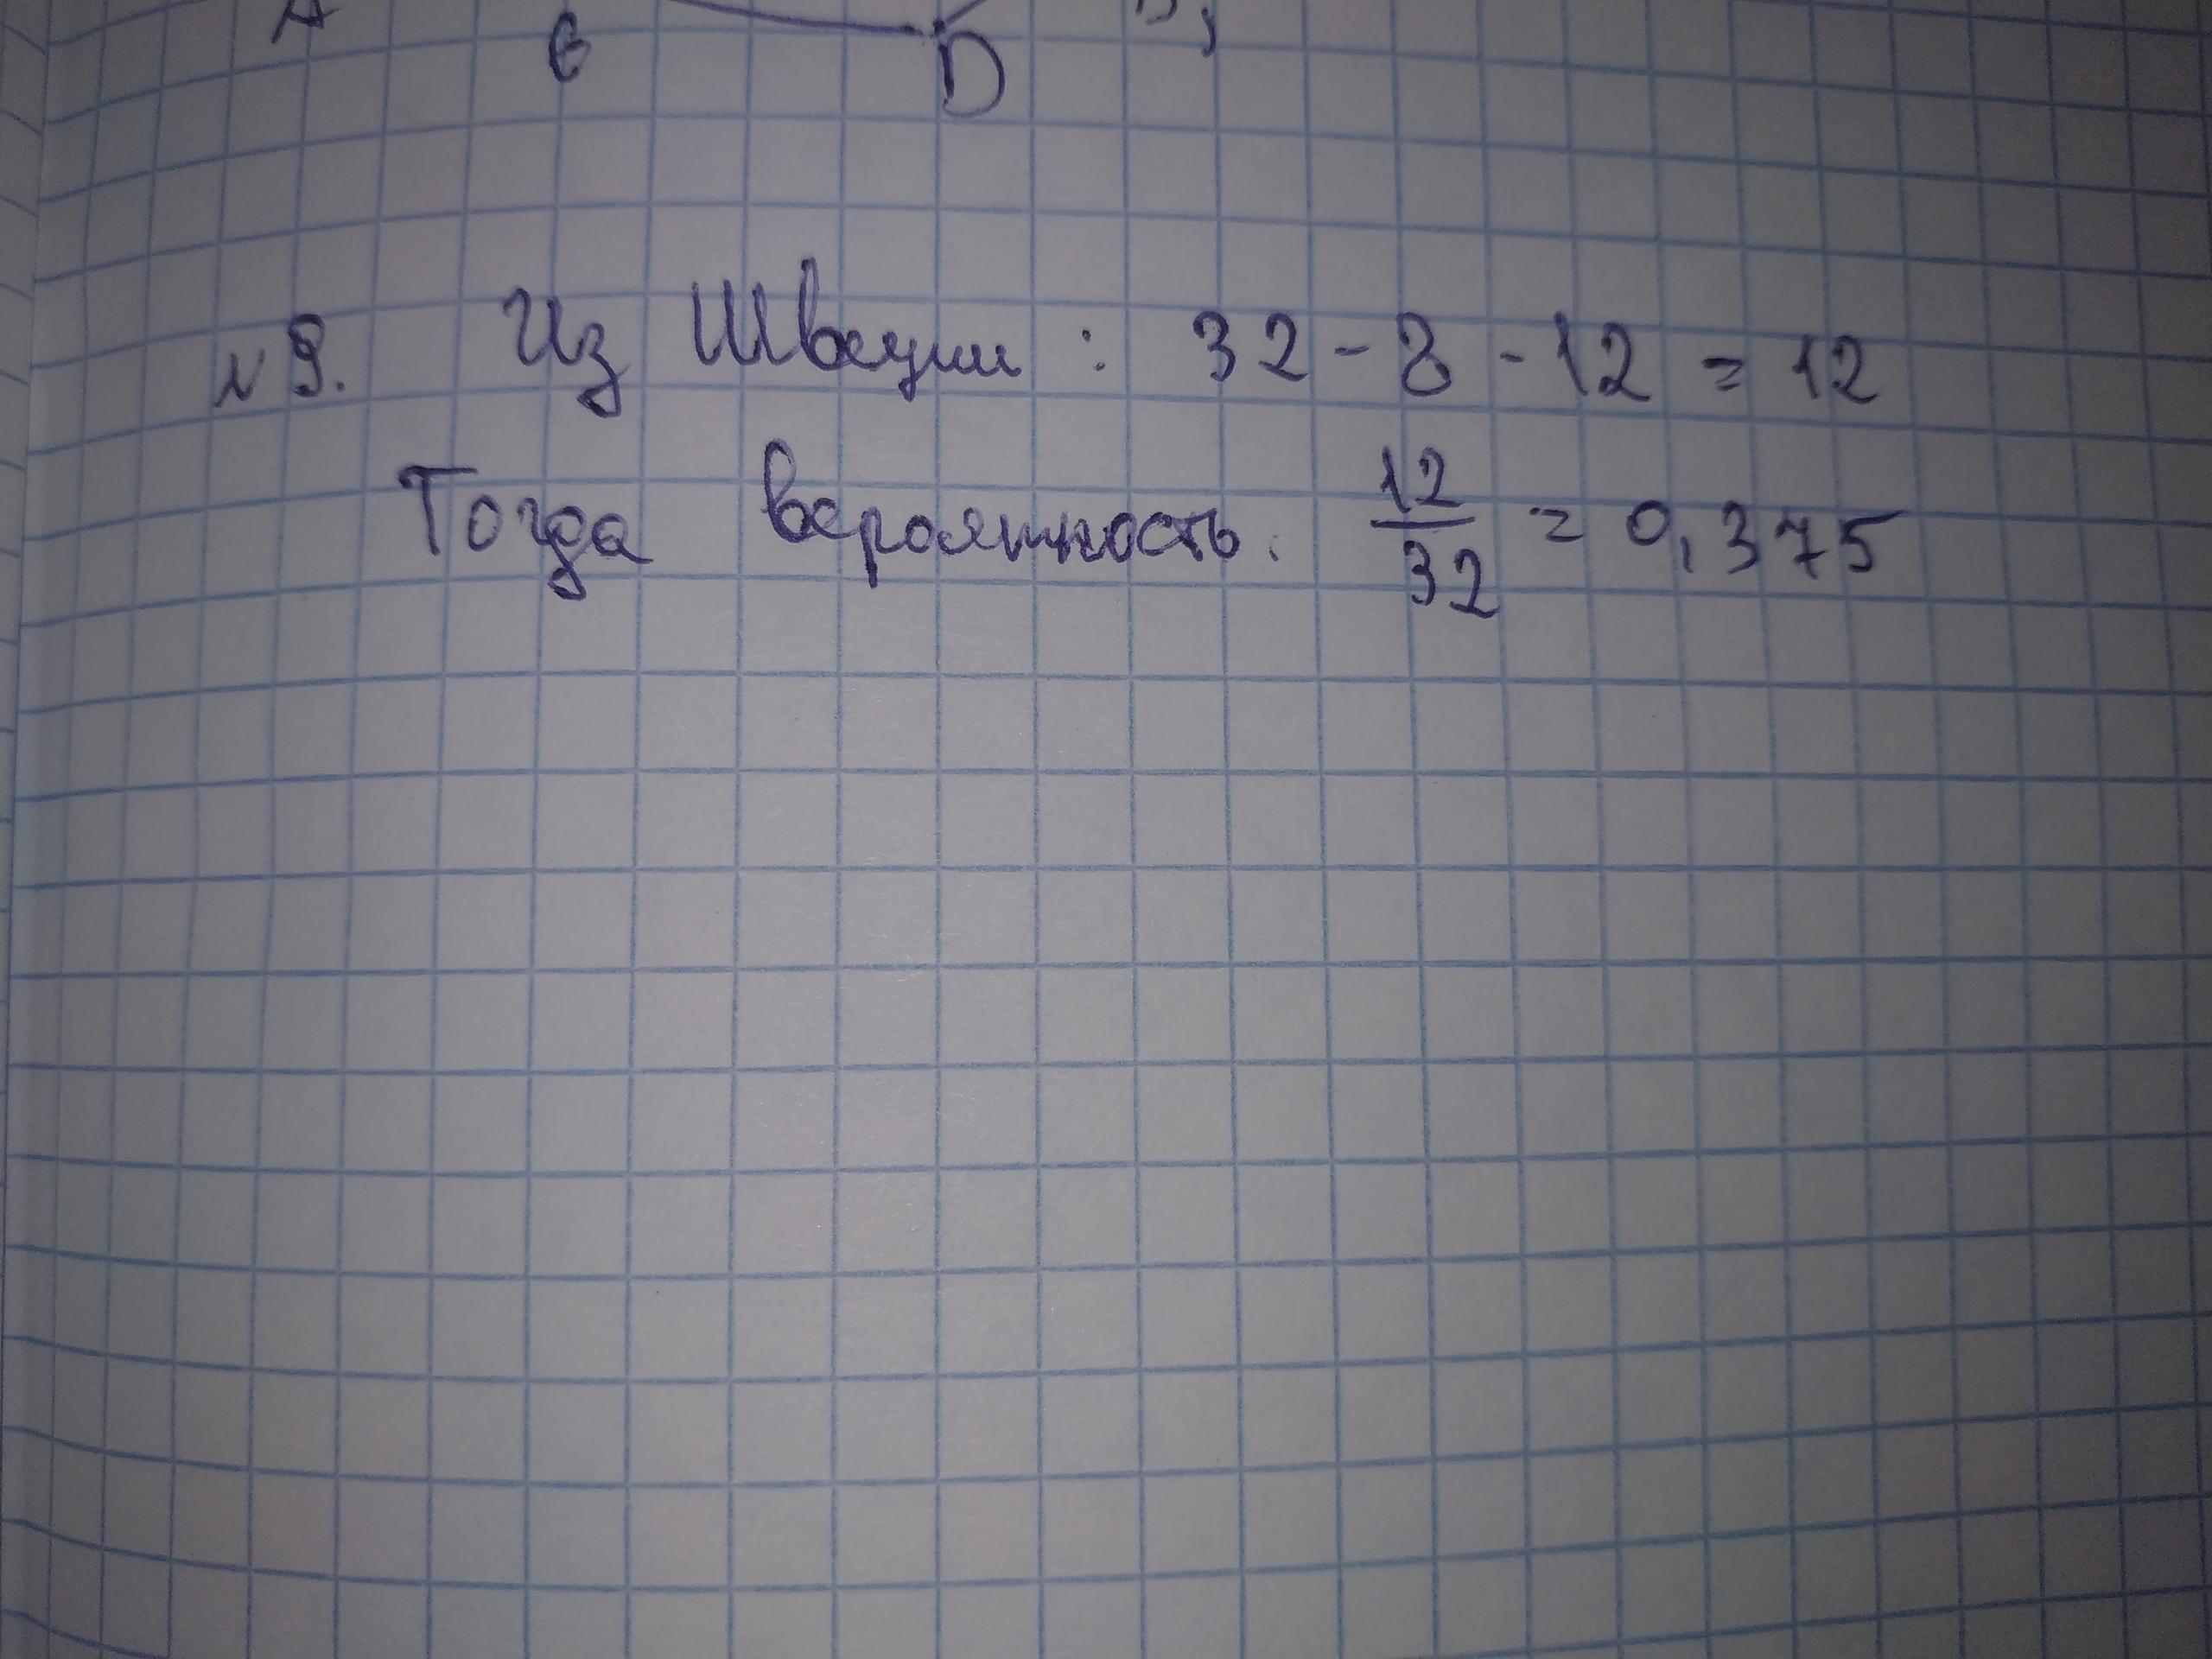 A
E
D
№ 9. Из Швеции : 32 - 8 - 12 = 12
Тогда вероятность. 12/32 = 0,375